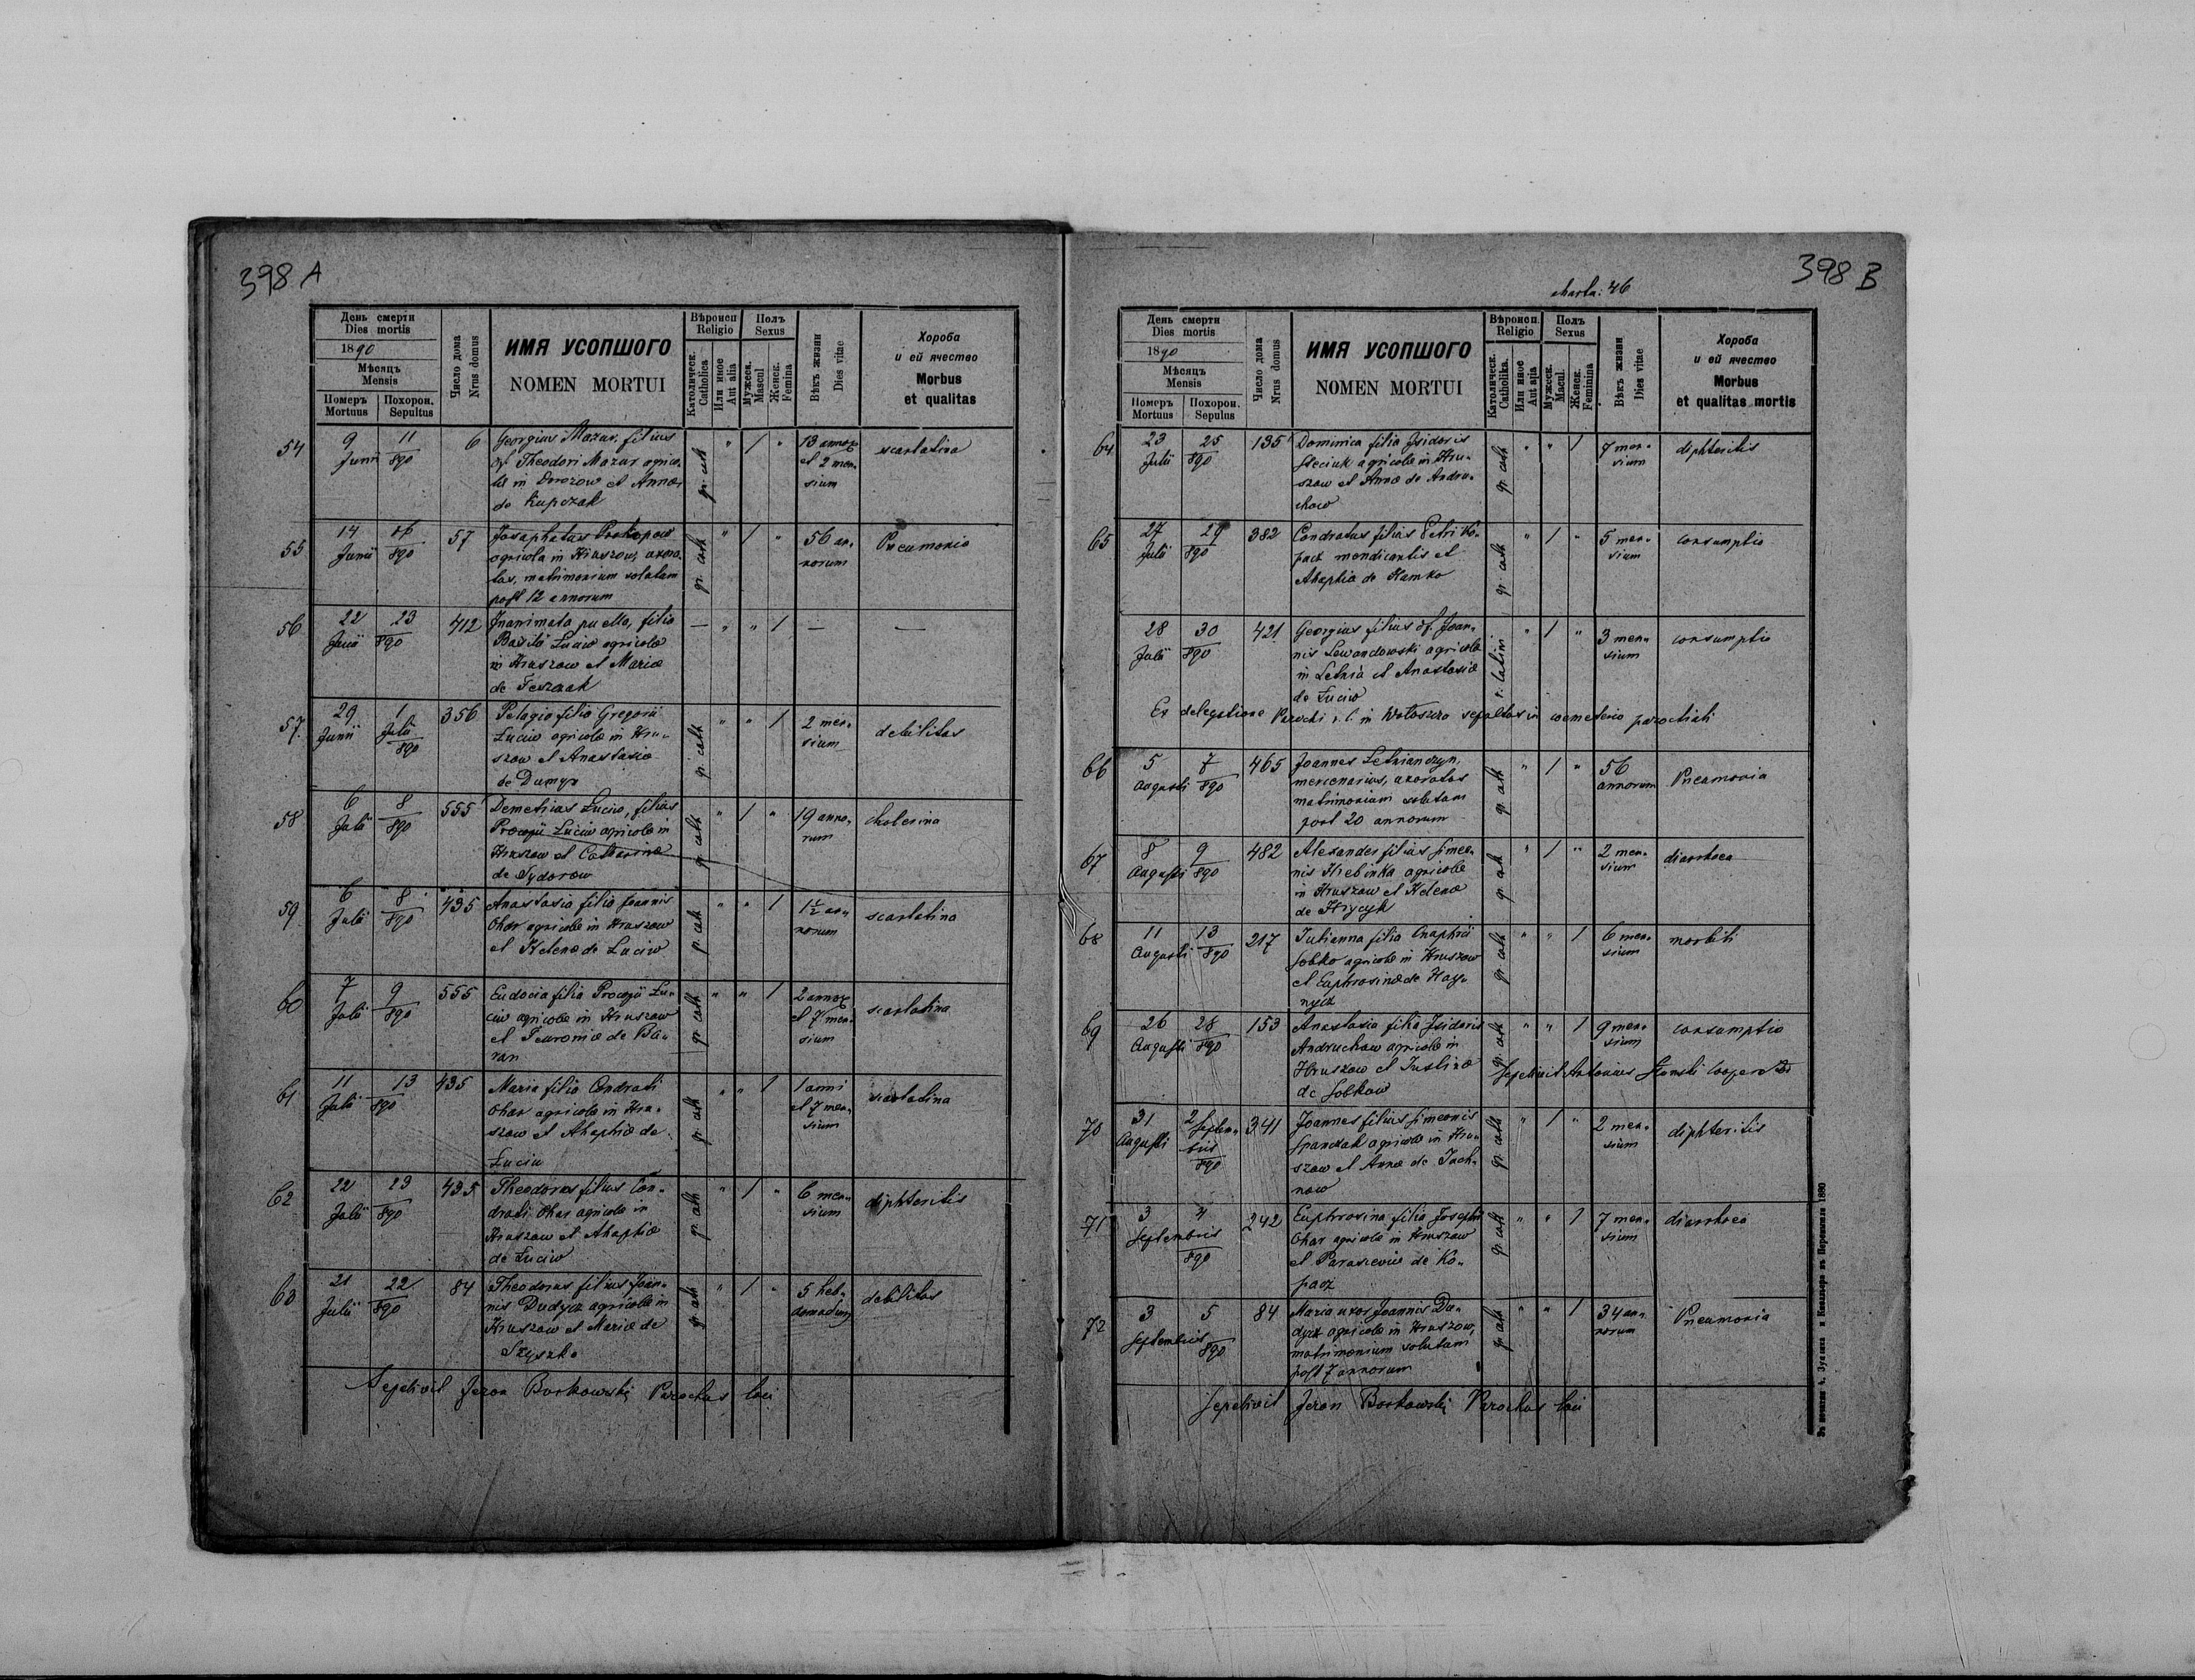 398 A
День смерти
Dies mortis
1890
Мѣсяцъ
Mensis
Померъ
Mortuus
Похорон.
Sepultus
Число дома
Nrus domus
ИМЯ УСОПШОГО
NOMEN MORTUI
Вѣроисп
Religio
Католическ.
Catholica
Или иное
Aut alia
Полъ
Sexus
Мужеск.
Mascul
Женск.
Femina
Вѣкъ жизни
Dies vitae
Хороба
и ей ячество
Morbus
et qualitas
54 9 Junii 11 890 6 Georgius Mazur, filius
Theodori Mazur agrico-
lae in Dorozow et Annae
de Kupczak
gr. cath " 1 " 13 annor et 2 men-
sium scarlatina
55 14 Junii 16 890 57 Josaphatus Prokopow
agricola in Hruszow, uxora-
tus, matrimonium solutum
post 12 annorum
gr. cath " 1 " 56 an-
norum Pneumonia
56 22 Junii 23 890 412 Inanimata puella, filia
Basilii Luciw agricolae
in Hruszow et Mariae
de
— " " 1 — —
57. 29 Junii 1 Julii 890 356 Pelagia filia Gregorii
Luciw agricolae in Hru-
szow et Anastasiae
de Dumyn
gr. cath " " 1 2 men-
sium debilitas
58 6 Julii 8 890 555 Demetrius Luciw, filius
Procopii Luciw agricolae in
Hruszow et Catharinae
de Sydorow
gr. cath " 1 " 19 anno-
rum cholerina
59 6 Julii 8 890 435 Anastasia filia Joannis
Ohar agricolae in Hruszow
et Helenae de Luciw
gr. cath " " 1 1½ an-
norum scarlatina
60 7 Julii 9 890 555 Eudocia filia Procopii Lu-
ciw agricolae in Hruszow
et Feuroniae de Ba-
ran
gr. cath " " 1 2 annor
et 7 men-
sium scarlatina
61 11 Julii 13 890 435 Maria filia Condrati
Ohar agricolae in Hru-
szow et Ahaphiae de
Luciw
gr. cath " " 1 1 anni
et 7 men-
sium scarlatina
62 22 Julii 23 890 435 Theodorus filius Con-
drati Ohar agricolae in
Hruszow et Ahaphiae
de Luciw
gr. cath " 1 " 6 men-
sium diphteritis
63 21 Julii 22 890 84 Theodorus filius Joan-
nis Dudycz agricolae in
Hruszow et Mariae de
Szyszka
gr. cath " 1 " 5 heb-
domadum debilitas
Sepelivit Jeron Borkowski Parochus loci
398 B
charta: 46
День смерти
Dies mortis
1890
Мѣсяцъ
Mensis
Померъ
Mortuus
Похорон.
Sepulus
Число дома
Nrus domus
ИМЯ УСОПШОГО
NOMEN MORTUI
Вѣроисп.
Religio
Католическ.
Catholika.
Или иное
Aut alia
Полъ
Sexus
Мужеск.
Macul.
Женск.
Feminina
Вѣкъ жизни
Dies vitae
Хороба
и ей ячество
Morbus
et qualitas mortis
64 23 Julii 25 890 135 Dominica filia Isidoris
Steciuk agricolae in Hru-
szow et Annae de Andru-
chow
gr. cath " " 1 7 men-
sium diphteritis
65 27 Julii 29 890 382 Condratus filius Petri Ko-
pacz mendicantis et
Ahaphia de Hamko
gr. cath " 1 " 5 men-
sium consumptio
66 28 Julii 30 890 421 Georgius filius Joan-
nis Lewandowski agricolae
in Letnia et Anastasiae
de Luciw
r. latin. " 1 " 3 men-
sium consumptio
Ex delegatione Parochi r. l. in Woloszcza sepultus in coemeterio parochiali
66 5 Augusti 7 890 465 Joannes Letnianczyn,
mercenarius, uxoratus
matrimonium solutum
post 20 annorum
gr. cath " 1 " 56
annorum Pneumonia
67 8 Augusti 9 890 482 Alexander filius Simeo-
nis Hrebinka agricolae
in Hruszow et Helenae
de Hrycyk
gr. cath " 1 " 2 men-
sium diarrhoea
68 11 Augusti 13 890 217 Julianna filia Onuphrii
Sobko agricolae in Hruszow
et Euphrosinae de
gr. cath " " 1 6 men-
sium morbili
69 26 Augusti 28 890 153 Anastasia filia Isidoris
Andruchow agricolae in
Hruszow et Justinae
de Sobkow
gr. cath " " 1 9 men-
sium consumptio
Sepelivit Antonius Cooperator
70 31 Augusti 2 Septem-
bris 890 341 Joannes filius Simeonis
Spanczak agricolae in Hru-
szow et Annae de Jach-
now
gr. cath " 1 " 2 men-
sium diphteritis
71 3 Septembris 4 890 242 Euphrosina filia Josephi
Ohar agricolae in Hruszow
et Parasceviae de Ko-
pacz
gr. cath " " 1 7 men-
sium diarrhoea
72 3 Septembris 5 890 84 Maria uxor Joannis Du-
dycz agricolae in Hruszow,
matrimonium solutum
post 7 annorum
gr. cath " " 1 34 an-
norum Pneumonia
Sepelivit Jeron Borkowski Parochus loci